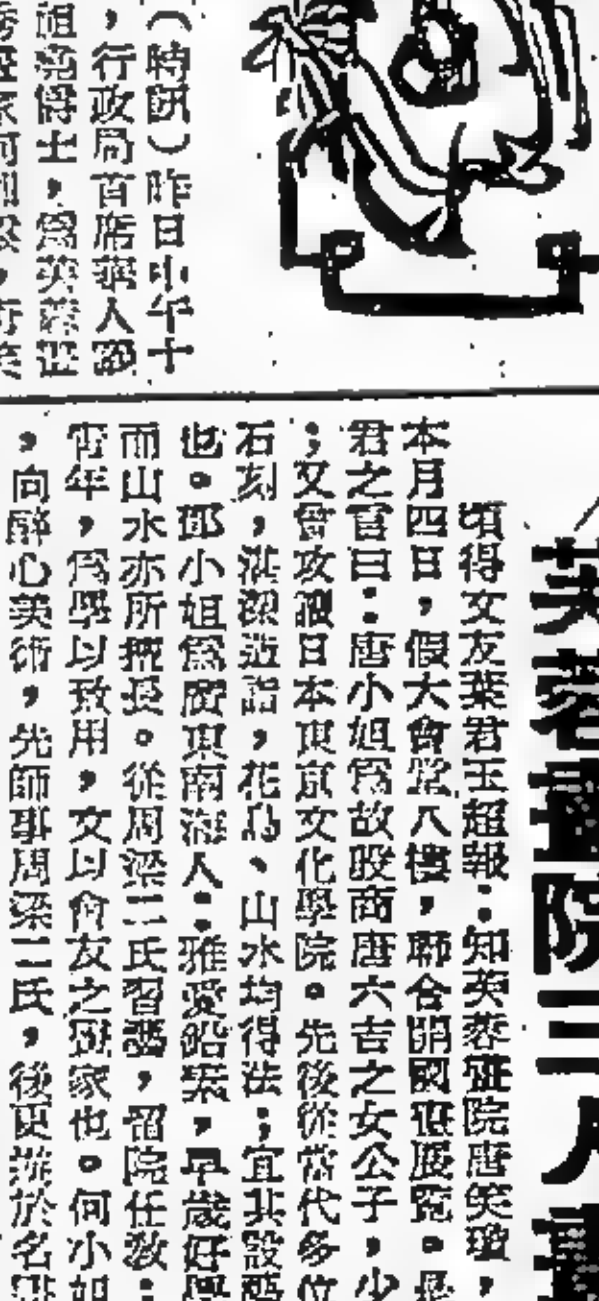 （特訊）昨日中午十
，行政局首席華人鄧
博士，為英
芙蓉畫院三人畫
頃得文友葉君玉超報：知芙蓉畫院唐笑瓊，
本月四日，假大會堂八樓，聯合開國畫展覽。
君之言曰：唐小姐為故殷商唐六吉之女公子，少
；又曾攻讀日本東京文化學院。先後從當代多位
石刻，造詣，花鳥、山水均得法；宜其設
也。鄧小姐為廣東南海人：雅愛鉛素，早歲好學
而山水亦所擅長。從周梁二氏習藝，留院任教：
青年，為學以致用，文以會友之畫家也。何小姐
，向醉心美術，先師事周梁二氏，後更游於名